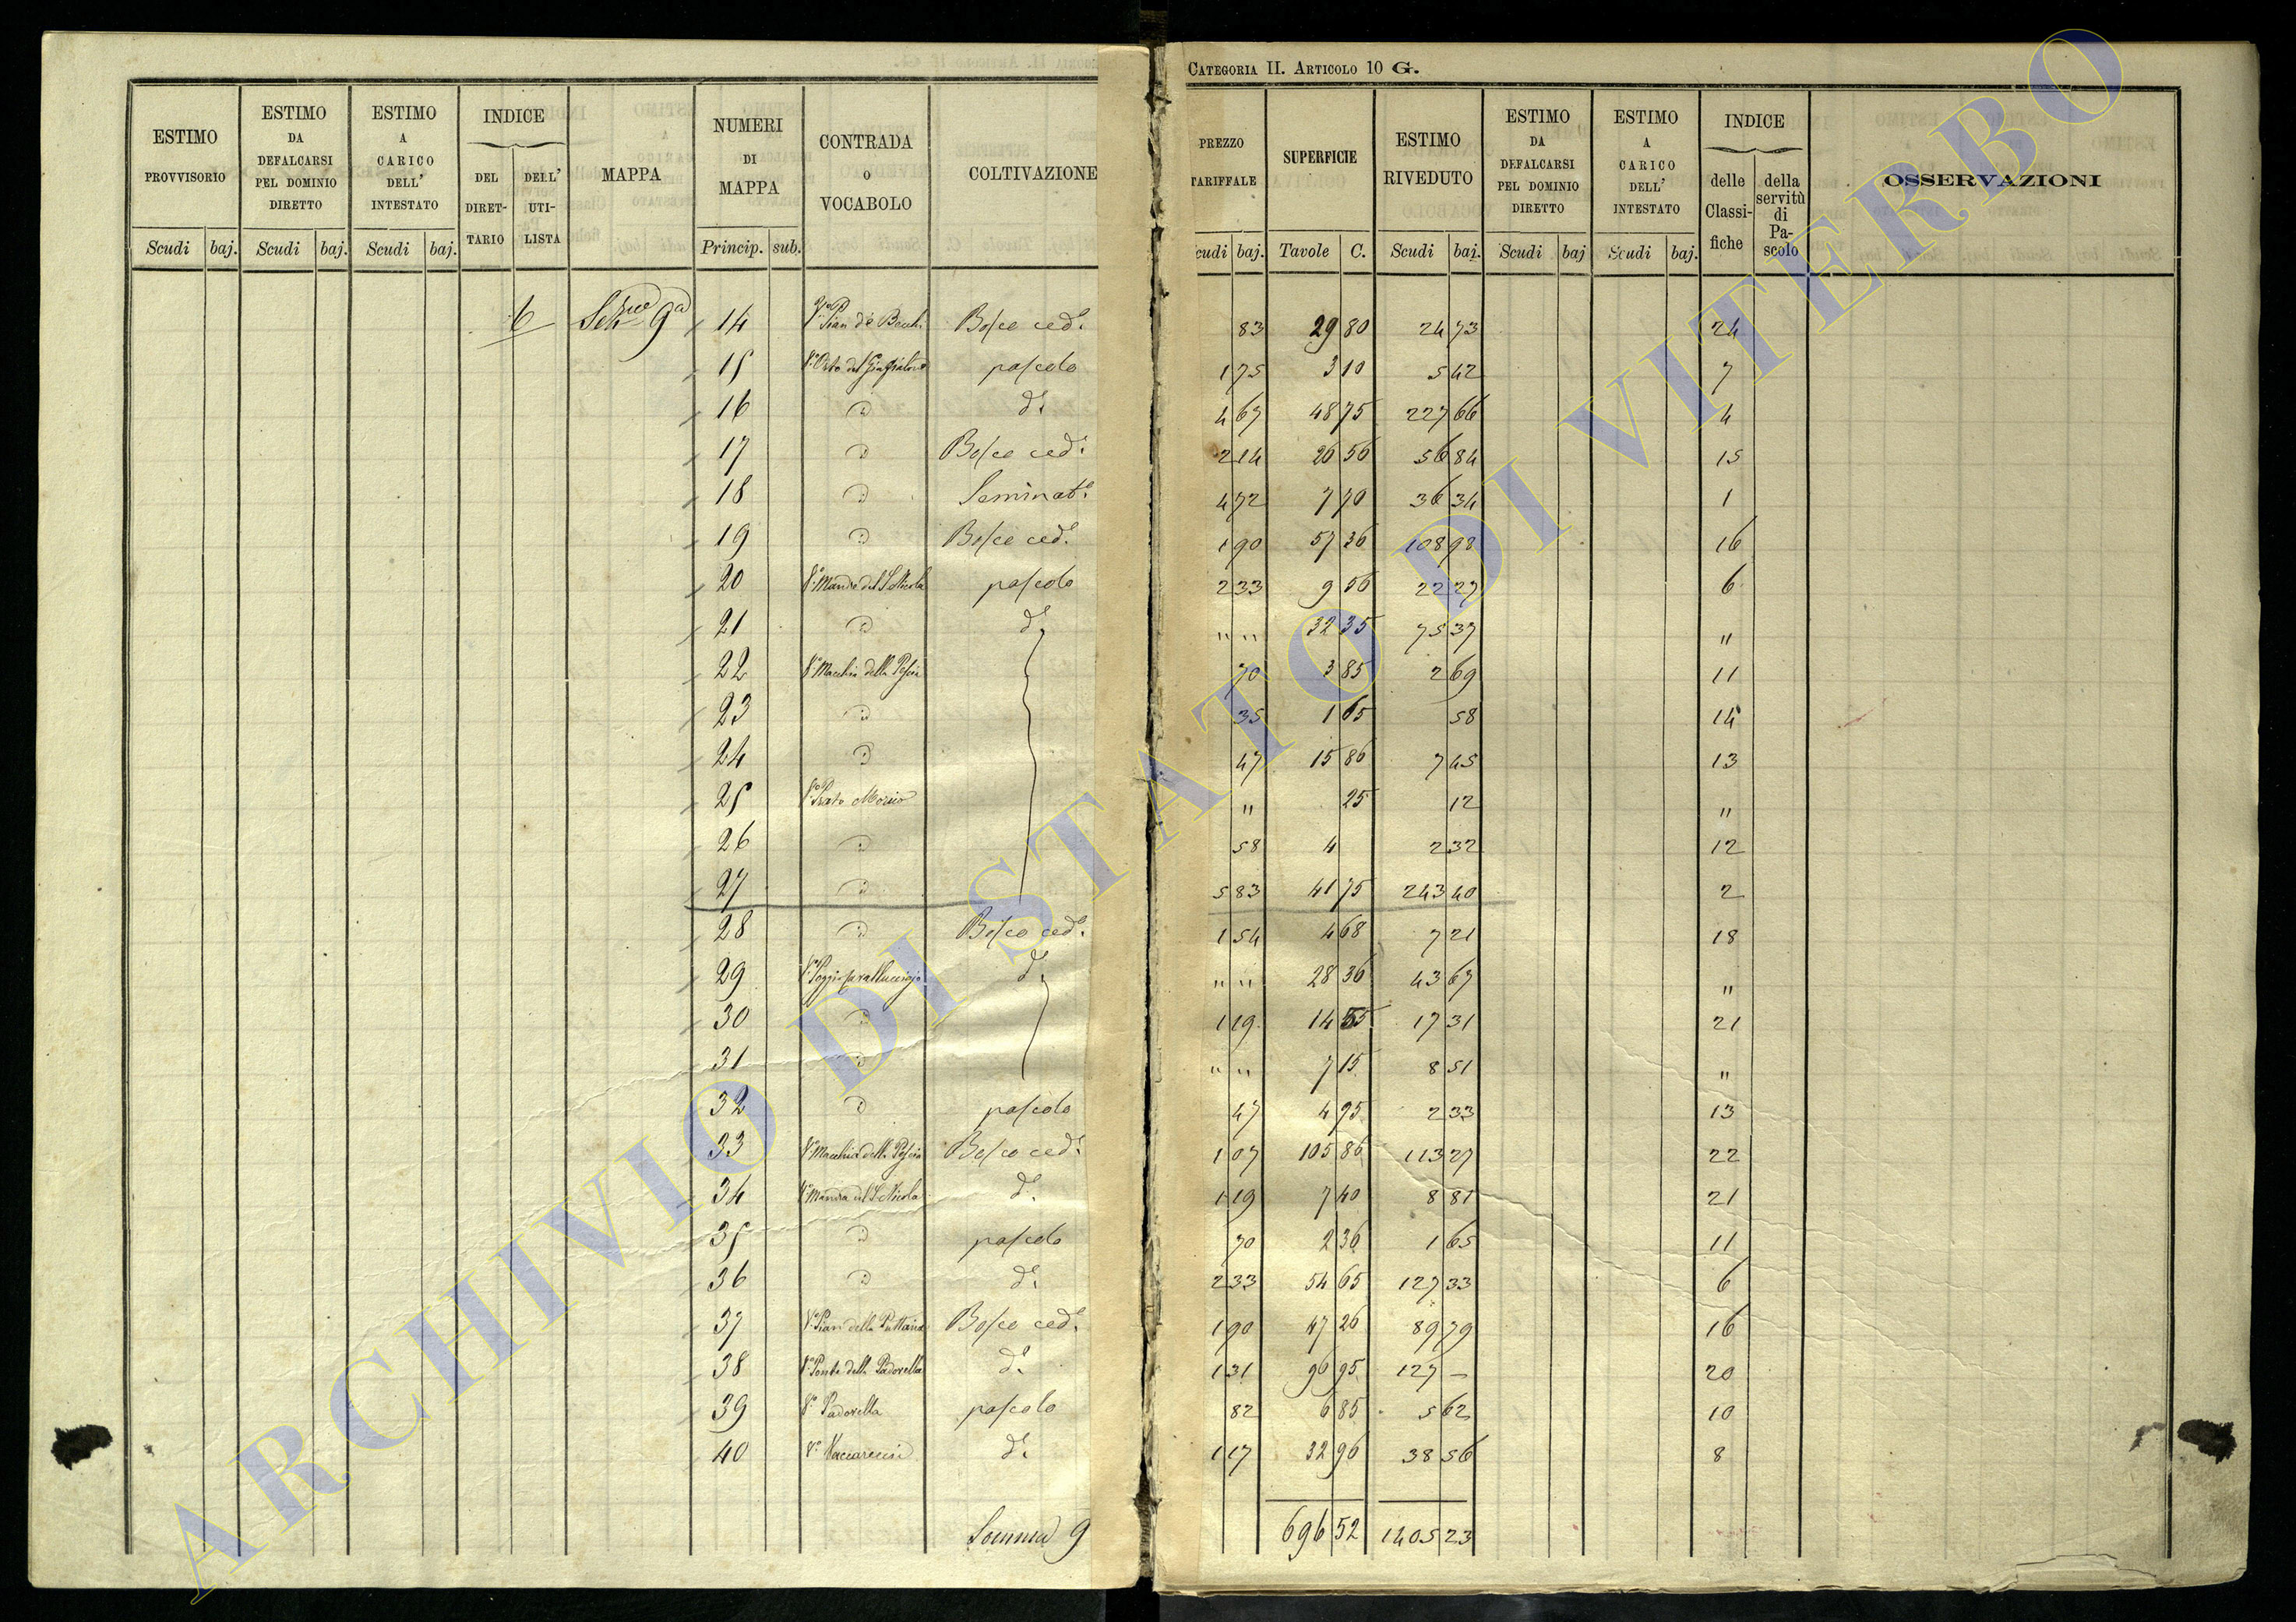 CATEGORIA II. ARTICOLO 10 G.
ESTIMO PROVVISORIO | ESTIMO DA DEFALCARSI PEL DOMINIO DIRETTO | ESTIMO A CARICO DELL' INTESTATO | INDICE DEL DIRET-TARIO | DELL' UTI-LISTA | MAPPA | NUMERI DI MAPPA | CONTRADA O VOCABOLO | COLTIVAZIONE | PREZZO TARIFFALE | SUPERFICIE | ESTIMO RIVEDUTO | ESTIMO DA DEFALCARSI PEL DOMINIO DIRETTO | ESTIMO A CARICO DELL' INTESTATO | INDICE delle Classi-fiche | della servitù di Pa-scolo | OSSERVAZIONI
Scudi | baj. | Scudi | baj. | Scudi | baj. | Princip. | sub. | cudi | baj. | Tavole | C. | Scudi | baj. | Scudi | baj | Scudi | baj.
6 | 9a | 14 | Vo Pian de | Bosco ced. | 83 | 29 80 | 24 73 | 24
15 | Vo Orto del | pascolo | 1 75 | 3 10 | 5 42 | 7
16 | " | do. | 4 67 | 48 75 | 227 66 | 4
17 | " | Bosco ced. | 2 14 | 26 56 | 56 84 | 15
18 | " | Seminato | 4 72 | 7 70 | 36 34 | 1
19 | " | Bosco ced. | 1 90 | 57 36 | 108 98 | 16
20 | Vo Mandra del S. Nicola | pascolo | 2 33 | 9 56 | 22 27 | 6
21 | " | do. | " " | 32 35 | 75 37 | "
22 | Vo Macchia della Pescia | 70 | 3 85 | 2 69 | 11
23 | " | 35 | 1 65 | 58 | 14
24 | " | 47 | 15 86 | 7 45 | 13
25 | Vo Prato | " | 25 | 12 | "
26 | " | 58 | 4 | 2 32 | 12
27 | " | 5 83 | 41 75 | 243 40 | 2
28 | " | Bosco ced. | 1 54 | 4 68 | 7 21 | 18
29 | Vo Poggio | do. | " " | 28 36 | 43 67 | "
30 | " | 1 19 | 14 55 | 17 31 | 21
31 | " | " " | 7 15 | 8 51 | "
32 | " | pascolo | 47 | 4 95 | 2 33 | 13
33 | Vo Macchia della Pescia | Bosco ced. | 1 07 | 105 86 | 113 27 | 22
34 | Vo Mandra del S. Nicola | do. | 1 19 | 7 40 | 8 81 | 21
35 | " | pascolo | 70 | 2 36 | 1 65 | 11
36 | " | do. | 2 33 | 54 65 | 127 33 | 6
37 | Vo Pian della Puttana | Bosco ced. | 1 90 | 47 26 | 89 79 | 16
38 | Vo Ponte della Padovella | do. | 1 31 | 96 95 | 127 – | 20
39 | Vo Padovella | pascolo | 82 | 6 85 | 5 62 | 10
40 | Vo Vaccareccia | do. | 1 17 | 32 96 | 38 56 | 8
Somma 9 | 696 52 | 1405 23
ARCHIVIO DI STATO DI VITERBO